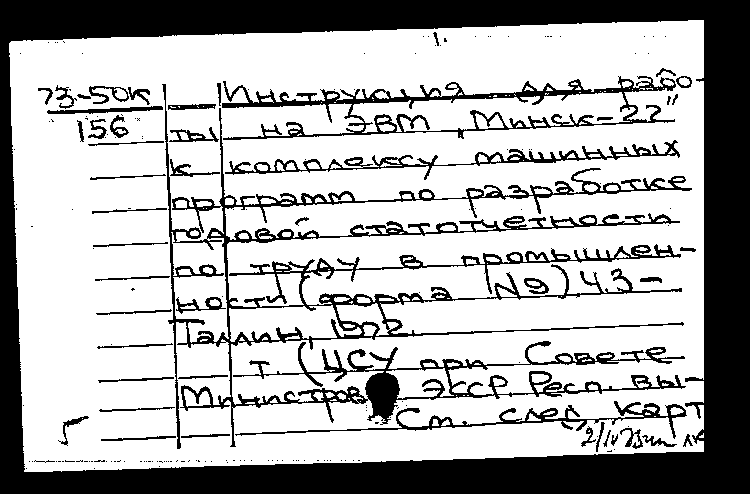 1.
73-50к Инструкция для рабо-
156 ты на ЭВМ „Минск-22"
к комплексу машинных
программ по разработке
годовой статотчетности
по труду в промышлен-
ности (форма N9) Ч.3-
Таллин, 1972.
Т. (ЦСУ при Совете
Министров ЭССР. Респ. вы-
См. след. карт